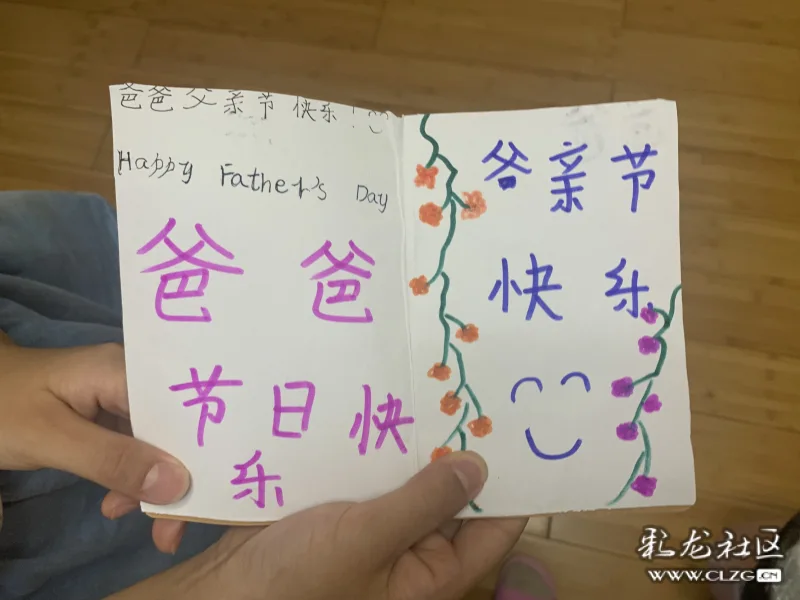 爸爸父亲节快乐！
Happy Father's Day
爸爸
节日快
乐
谷亲节
快乐
彩龙社区
WWW.CLZG.CN